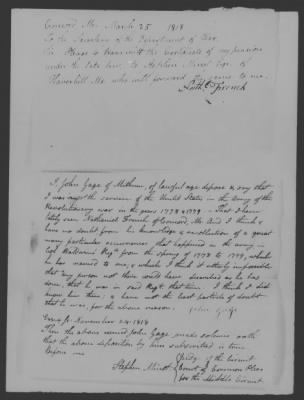 Concord, Me. March 25 1819
To the Secretary of the Department of War.
Sir Please to transmit the certificate of my pension
under the late law, to Stephen Minot Esqr. of
Haverhill Ms. who will forward the same to me.
French
I, John Gage of Methuen, of lawful age depose & say that
I was in the service of the United States in the army of the
Revolutionary war in the years 1778 & 1779 — That I have
lately seen Nathaniel French of Concord, Me. And I think &
have no doubt from his knowledge & recollection of a great
many particular circumstances that happened in the army in
Col. Regt. from the spring of 1778 to 1779, which
he has named to me, & which I think it utterly impossible
that any person not there could have described as he has
done, that he was in said Regt. at that time. I think I did
know him there, & have not the least particle of doubt
that he was, for the above reason. John Gage
Essex ss. November 24. 1818
Then the above named John Gage made solemn oath
that the above deposition by him subscribed is true
Before me
Stephen Minot Judge of the Circuit
Court of Common Pleas
for the Middle Circuit